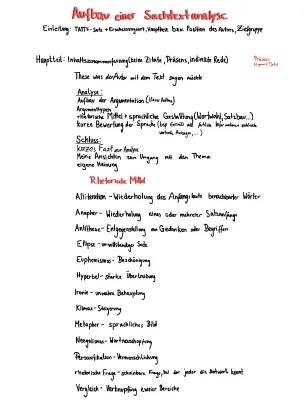 Aufbau einer Sachtextanalyse
Einleitung: TATTE-Satz + Erscheinungsort, Hauptthese bzw. Position des Autors, Zielgruppe
Hauptteil: Inhaltszusammenfassung (keine Zitate, Präsens, indirekte Rede)
Präsens
These was der Autor mit dem Text sagen möchte
Analyse:
Aufbau der Argumentation
Argumenttypen
rhetorische Mittel + sprachliche Gestaltung (Wortwahl, Satzbau...)
kurze Bewertung der Sprache
Schluss:
kurzes Fazit zur Analyse
Meine Ansichten zum Umgang mit dem Thema
eigene Meinung
Rhetorische Mittel
Alliteration - Wiederholung des Anfangslauts benachbarter Wörter
Anapher - Wiederholung eines oder mehrerer Satzanfänge
Antithese - Entgegenstellung von Gedanken oder Begriffen
Ellipse - unvollständiger Satz
Euphemismus - Beschönigung
Hyperbel - starke Übertreibung
Ironie - unwahre Behauptung
Klimax - Steigerung
Metapher - sprachliches Bild
Neologismus - Wortneuschöpfung
Personifikation - Vermenschlichung
rhetorische Frage - scheinbare Frage, bei der jeder die Antwort kennt
Vergleich - Verknüpfung zweier Bereiche